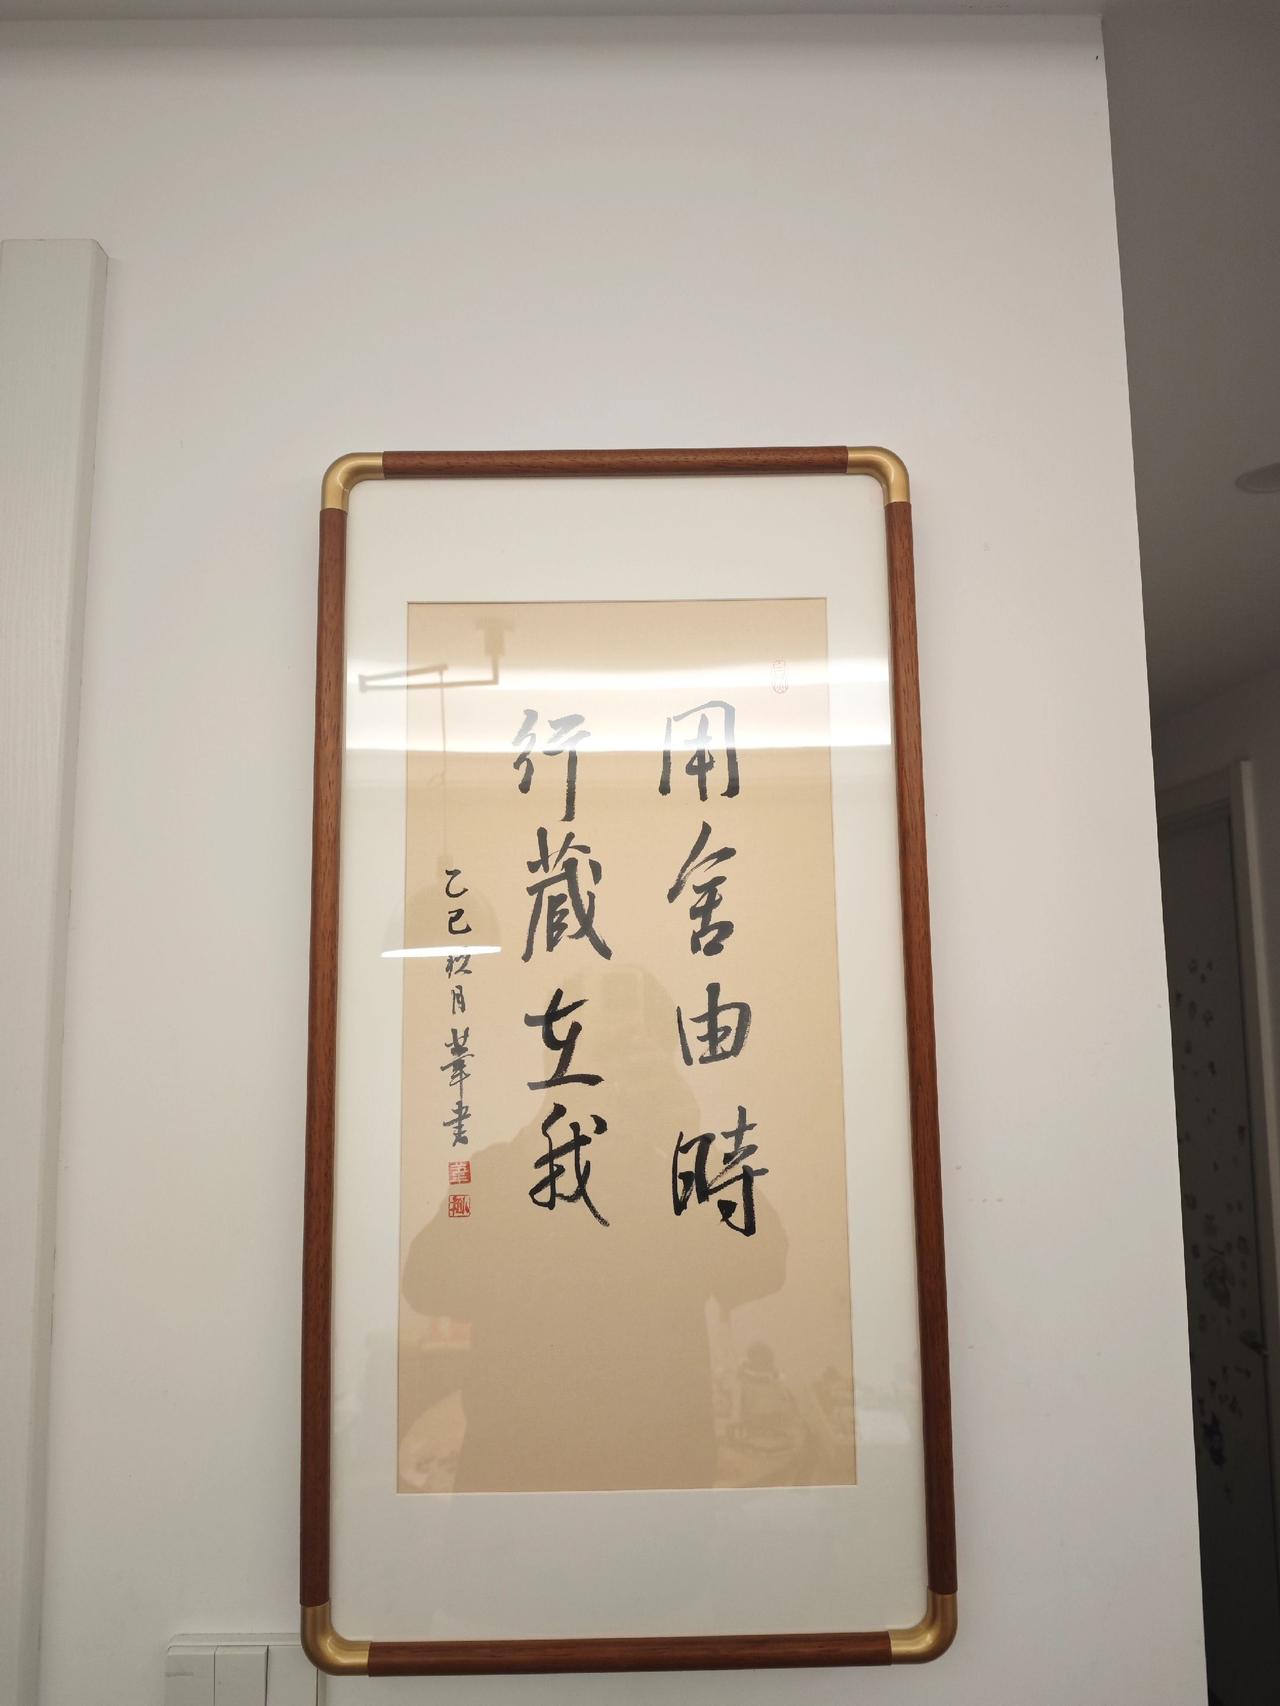 用舍由時
行藏在我
乙巳秋月華书